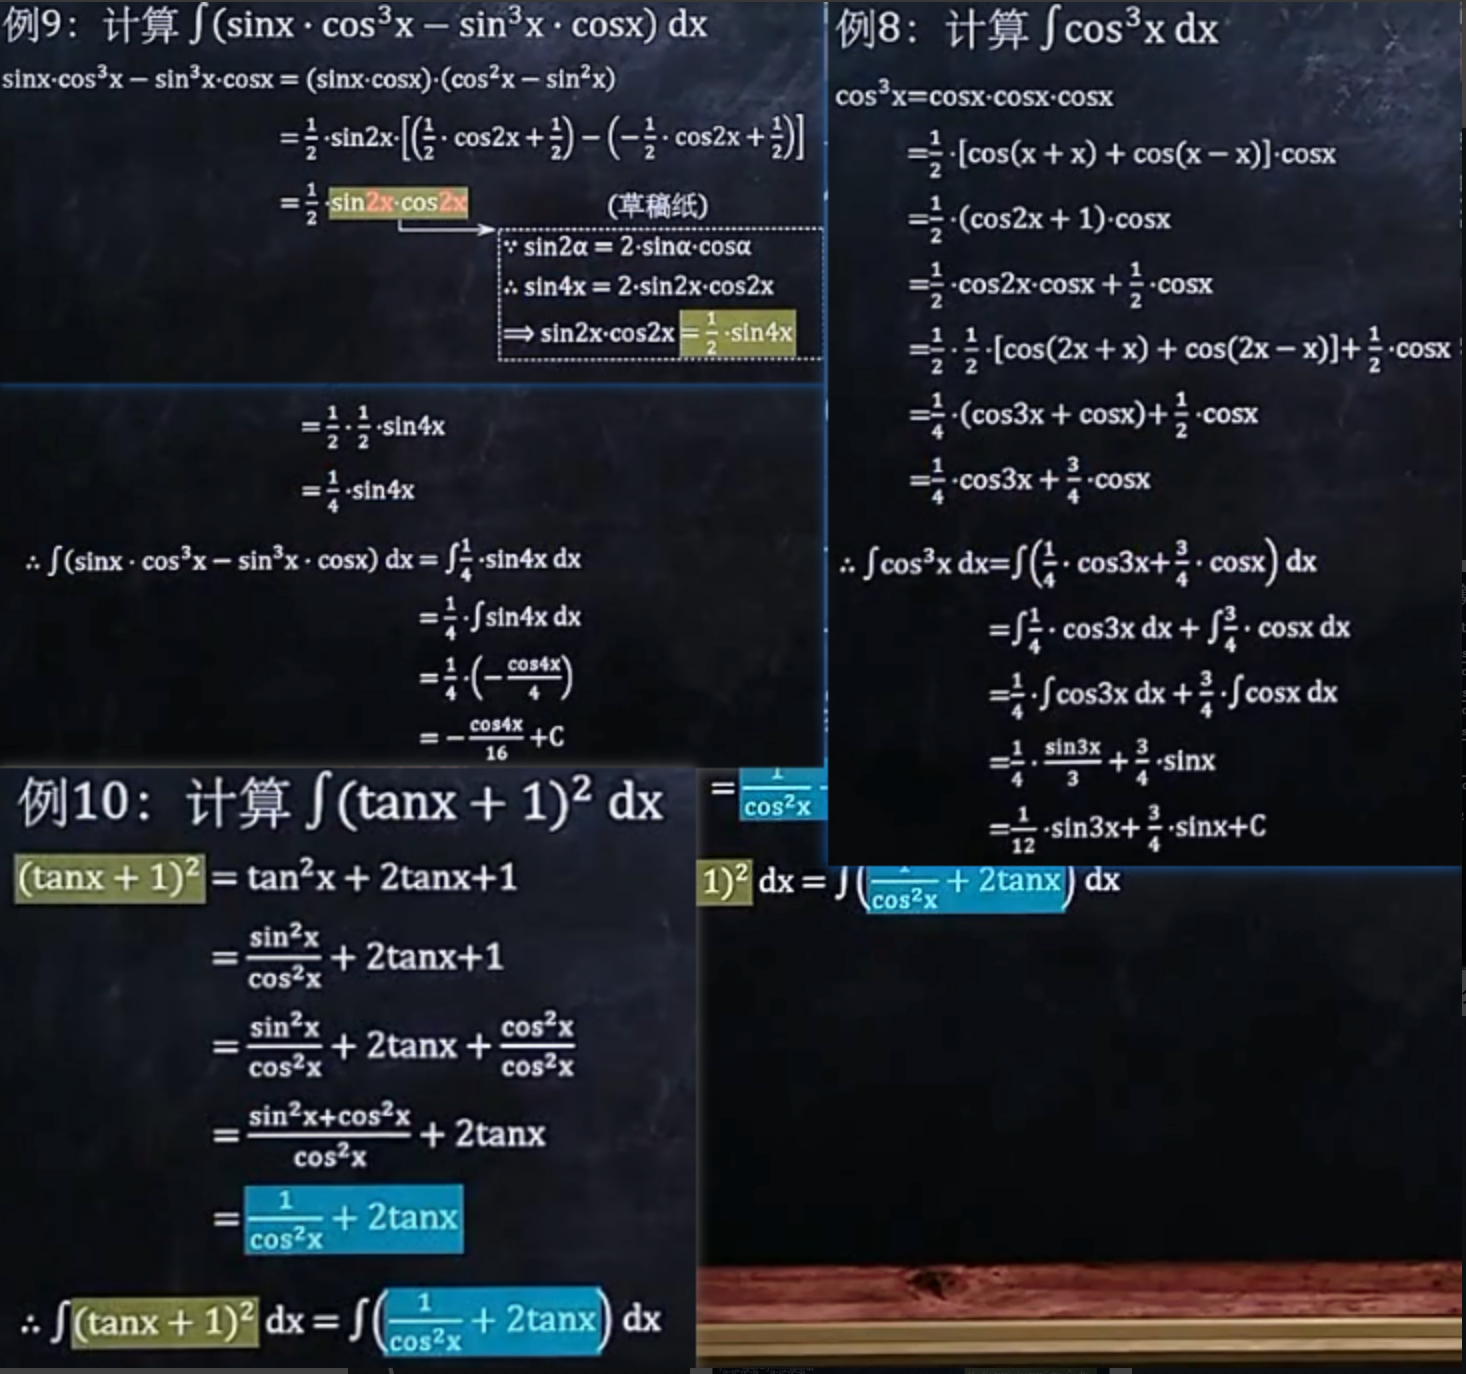 例9：计算 ∫(sinx · cos³x − sin³x · cosx) dx
sinx·cos³x − sin³x·cosx = (sinx·cosx)·(cos²x − sin²x)
= 1/2 ·sin2x·[(1/2 · cos2x + 1/2) − (−1/2 · cos2x + 1/2)]
= 1/2 ·sin2x·cos2x
(草稿纸)
∵ sin2α = 2·sinα·cosα
∴ sin4x = 2·sin2x·cos2x
⟹ sin2x·cos2x = 1/2 ·sin4x
= 1/2 · 1/2 ·sin4x
= 1/4 ·sin4x
∴ ∫(sinx · cos³x − sin³x · cosx) dx = ∫1/4 ·sin4x dx
= 1/4 ·∫sin4x dx
= 1/4 ·(− cos4x/4)
= − cos4x/16 +C
例8：计算 ∫cos³x dx
cos³x=cosx·cosx·cosx
=1/2 ·[cos(x + x) + cos(x − x)]·cosx
=1/2 ·(cos2x + 1)·cosx
=1/2 ·cos2x·cosx + 1/2 ·cosx
=1/2 · 1/2 ·[cos(2x + x) + cos(2x − x)]+ 1/2 ·cosx
=1/4 ·(cos3x + cosx)+ 1/2 ·cosx
=1/4 ·cos3x + 3/4 ·cosx
∴ ∫cos³x dx=∫(1/4 · cos3x+ 3/4 · cosx) dx
=∫1/4 · cos3x dx + ∫3/4 · cosx dx
=1/4 ·∫cos3x dx + 3/4 ·∫cosx dx
=1/4 · sin3x/3 + 3/4 ·sinx
=1/12 ·sin3x+ 3/4 ·sinx+C
例10：计算 ∫(tanx + 1)² dx
(tanx + 1)² = tan²x + 2tanx+1
= sin²x/cos²x + 2tanx+1
= sin²x/cos²x + 2tanx + cos²x/cos²x
= (sin²x+cos²x)/cos²x + 2tanx
= 1/cos²x + 2tanx
∴ ∫(tanx + 1)² dx = ∫(1/cos²x + 2tanx) dx
= 1/cos²x
1)² dx = ∫(1/cos²x + 2tanx) dx